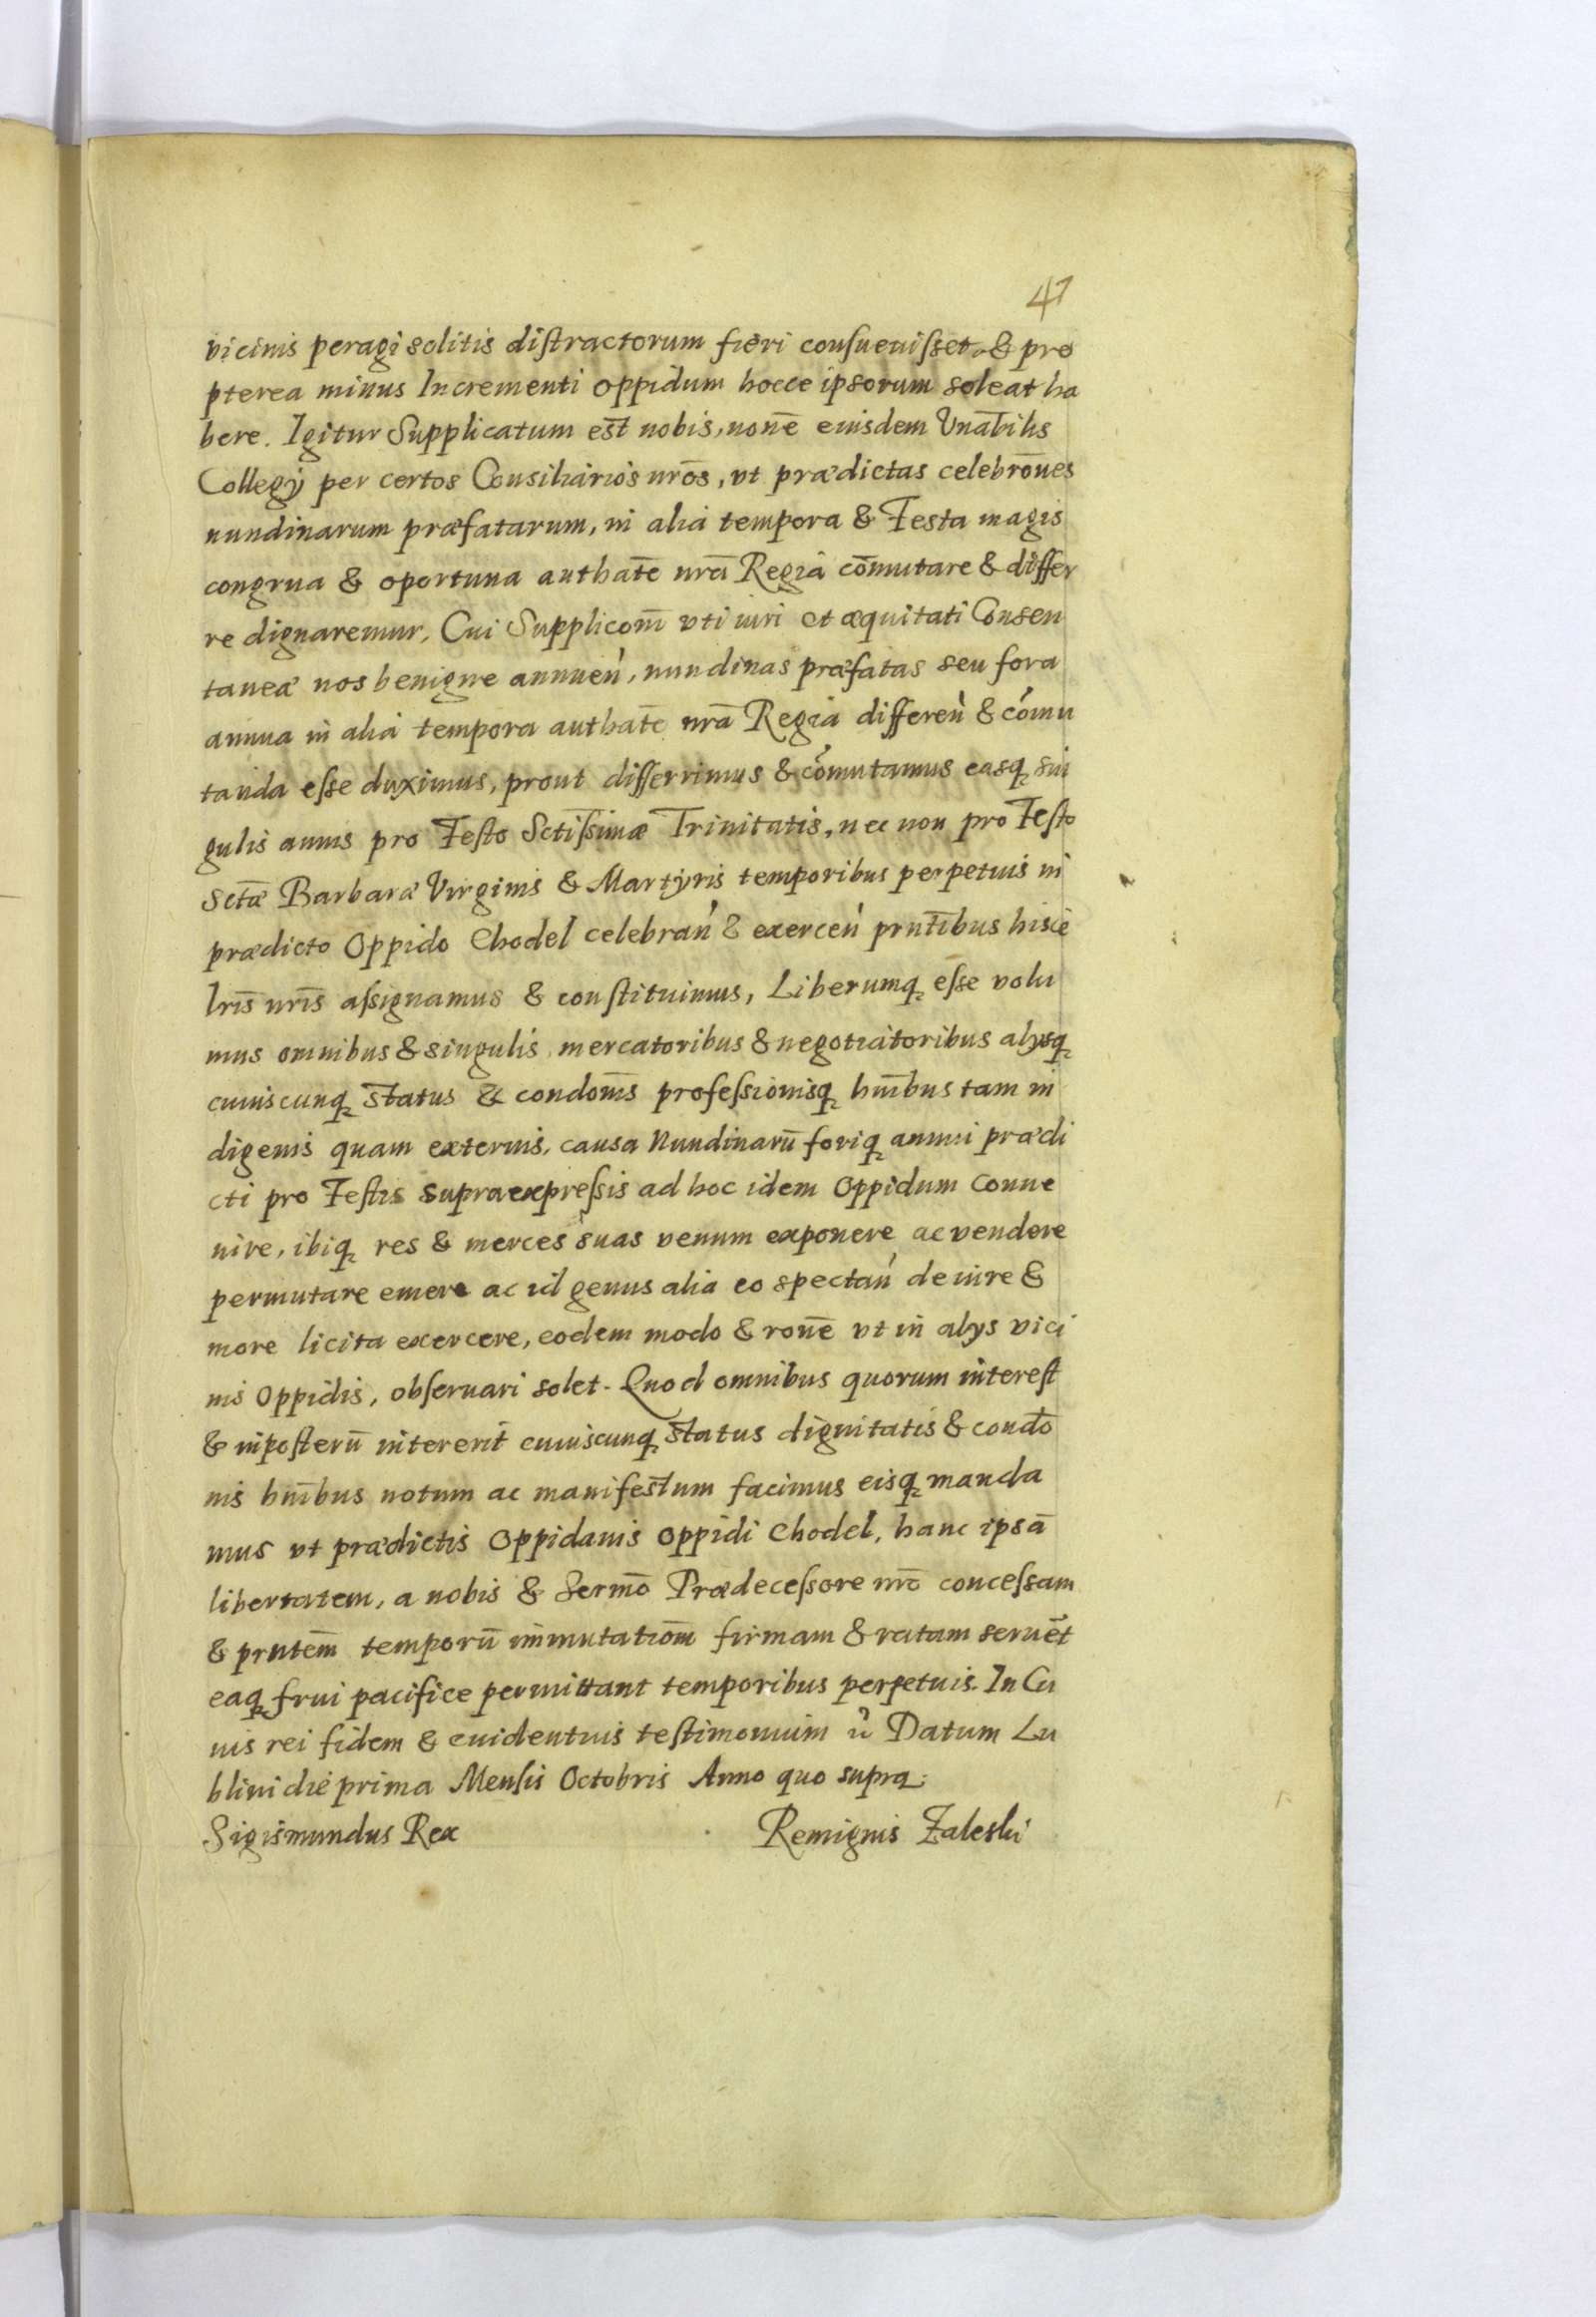 47
vicinis peragi solitis distractorum fieri consuevisset & pro
pterea minus Incrementi oppidum hocce ipsorum soleat ha
bere. Igitur Supplicatum est nobis, noñe eiusdem Vnabilis
Collegÿ per certos Consiliarios nros, vt prædictas celebrones
nundinarum præfatarum, in alia tempora & Festa magis
congrua & oportuna authate nra Regia comutare & differ
re dignaremur, Cui Supplicom vti iuri et æquitati Consen
taneæ nos benigne annuen, nundinas præfatas seu fora
annua in alia tempora authate nra Regia differen & comu
tanda esse duximus, prout differrimus & comutamus easq sin
gulis annis pro Festo Sctissimæ Trinitatis, nec non pro Festo
Sctæ Barbaræ Virginis & Martÿris temporibus perpetuis in
prædicto Oppido Chodel celebran & exercen pntibus hisce
lris nris assignamus & constituimus, Liberumq esse volu
mus omnibus & singulis mercatoribus & negotiatoribus alysq
cuiuscunq status & condonis professionisq hnibus tam in
digenis quam externis, causa Nundinarū foriq annui prædi
cti pro Festis supraexpressis ad hoc idem Oppidum conue
nire, ibiq res & merces suas venum exponere ac vendere
permutare emere ac id genus alia eo spectan de iure &
more licita exercere, eodem modo & rone vt in alys vici
nis Oppidis, obseruari solet. Quod omnibus quorum interest
& inposterū intererit cuiuscunq status dignitatis & condo
nis hnibus notum ac manifestum facimus eisq manda
mus vt prædictis Oppidanis oppidi Chodel, hanc ipsā
libertatem, a nobis & Sermo Prædecessore nro concessam
& pntem temporū immutatiom firmam & ratam seruēt
eaq frui pacifice permittant temporibus perpetuis. In Cu
ius rei fidem & euidentius testimonium ꝛc Datum Lu
blini die prima Mensis Octobris Anno quo supra.
Sigismundus Rex Remigius Zaleski